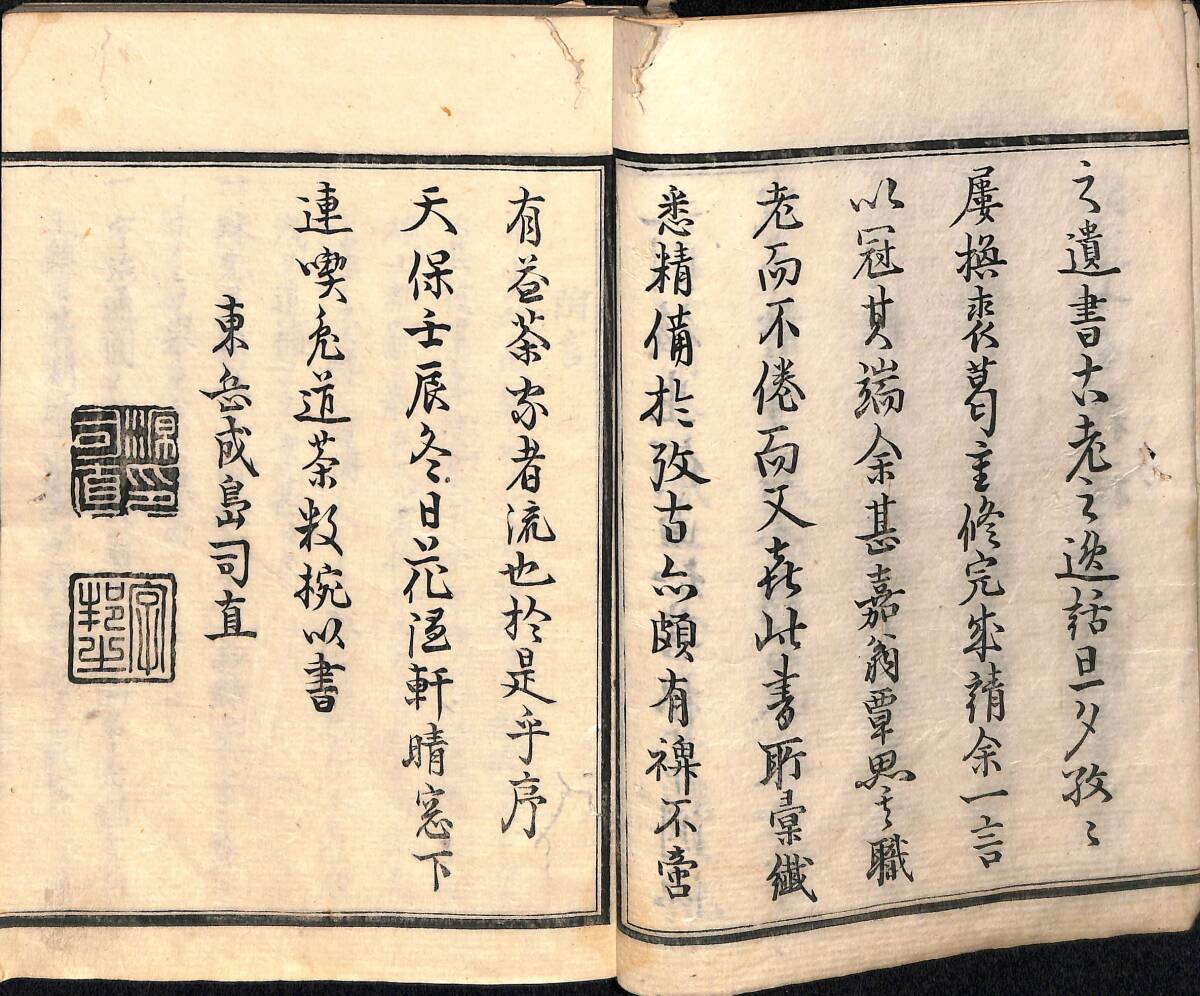 之遺書古老之逸話旦夕孜〻
屢換裘葛修完請余一言
以冠其端余甚嘉翁覃思其職
老而不倦而又喜此書所彙纖
悉精備於攷古亦頗有裨不啻
有益茶家者流也於是乎序
天保壬辰冬日花軒晴窓下
連喫兎道茶数椀以書
東岳成島司直
源印司直